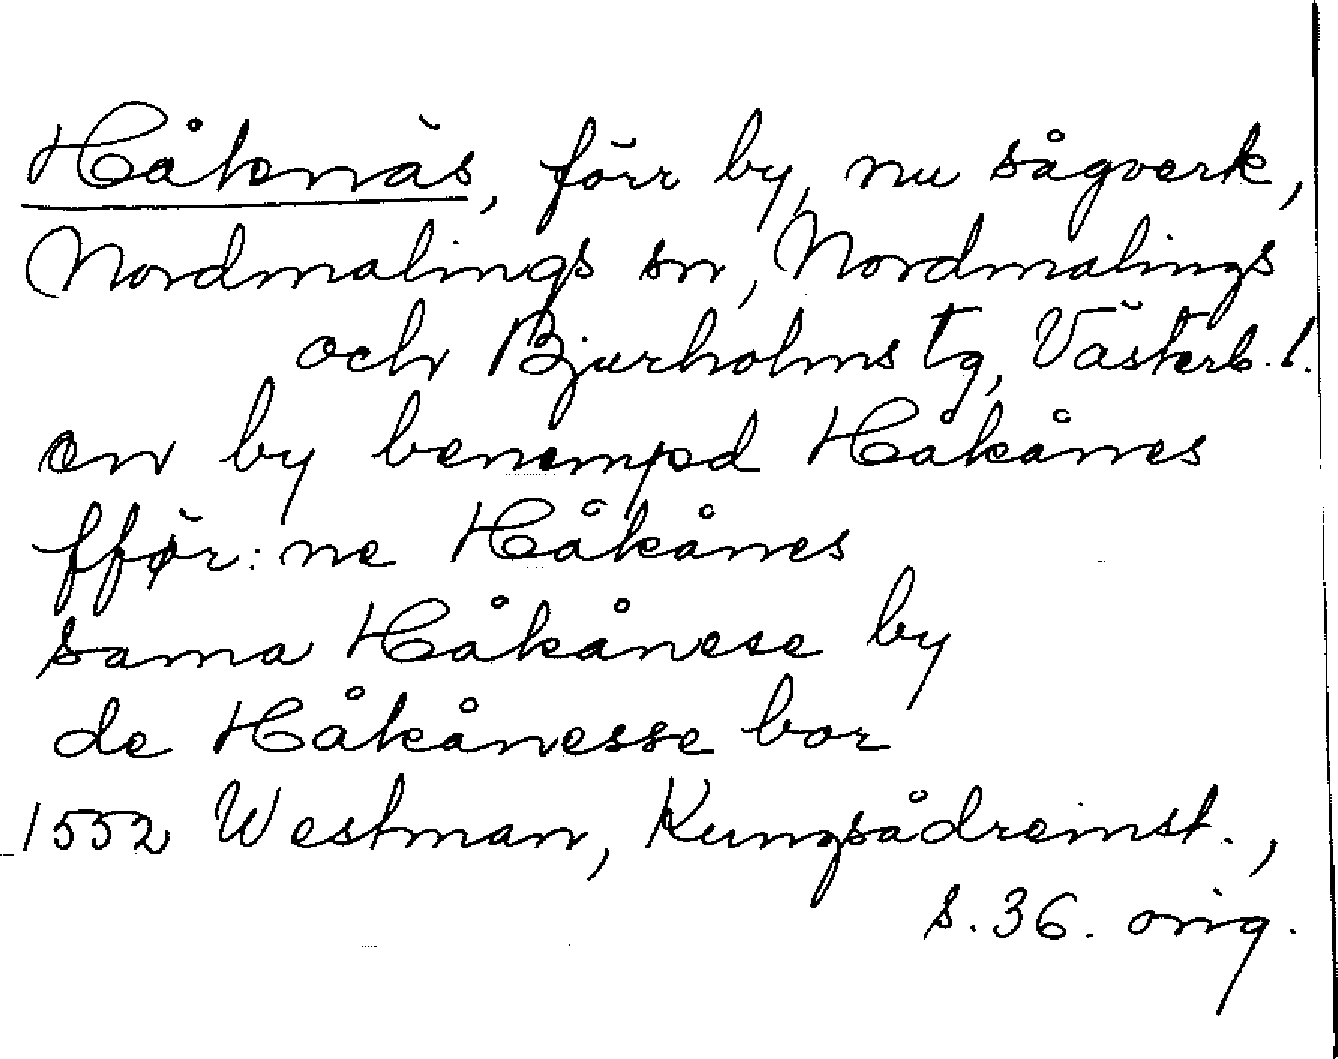 Håknäs, förr by, nu sågverk,
Nordmalings sn, Nordmalings
och Bjurholms tg, Västerb. l.
en by benempd Håkånes
fför:ne Håkånes
sama Håkånese by
de Håkånesse bor
1552 Westman, Kungsådreinst.,
s. 36. orig.